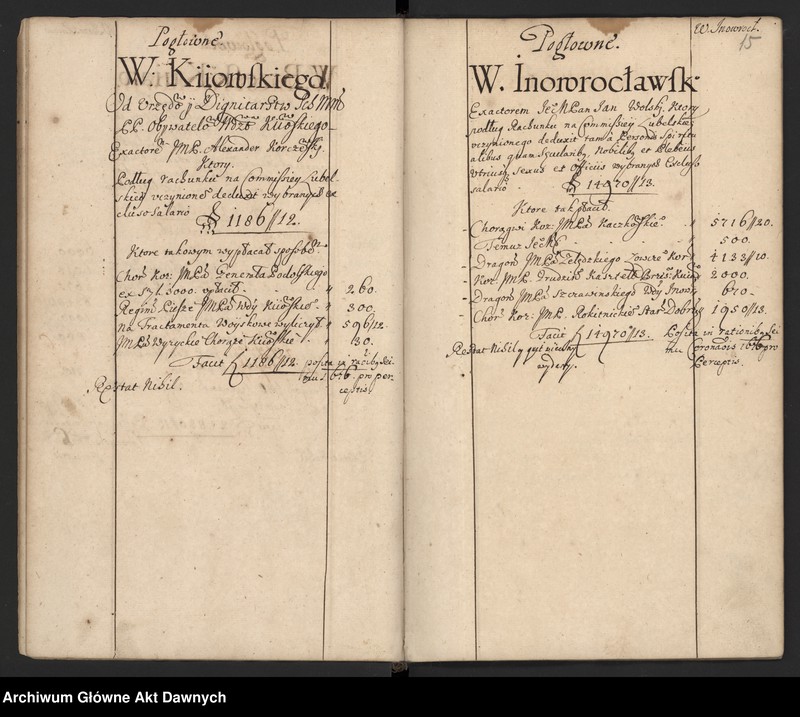 Pogłowne
W. Kiiowskiego
Od Urzędo y Dignitarstw Ich Mm
PP. Obywatelo Wdzt Kiioskiego
Exactore JMP. Alexander Korczesky.
Ktory.
Podług rachunku na Commissiey Lubel-
skiey uczynione deduxit wybranych ex
cluso salario
1186 // 12.
Ktore takowym wypłacał sposobe.
Chor. Kor. JMPa Generała Podolskiego
ex syl. 5000. opłacił 260.
Regim. Piesze JMPa Wdy Kiioskie 300.
Na Tractamenta Woyskowe wyliczył 596 // 12.
JMPa Chorąże Kiioskie 30.
Facit 1186 // 12. posita in ratiib Sei
mu 1676. pro per-
ceptis.
Restat Nihil.
W. Inowrocł.
15
Pogłowne.
W. Inowrocławsk
Exactorem Je MPan Jan Wolsky. Ktory
podług Rachunku na Commissiey Lubelskiey
uczynionego deduxit tam a Personis Spiritu
alibus quam Secularib, Nobilib et Plebeis
utriusq Sexus et Officiis wybranych Excluso
salario 14970 // 13.
Ktore tak płacił.
Chorągwi Kor. JMPa Kaczkoskie 5716 // 20.
Temuz 500.
Dragon JMPa Żeleckiego Łowcze Kor 4133 // 10.
Kor. JMP. Grudzisk Kasztela Brzes. Kuiaw 2000.
Dragon JMPa Szczawinskiego Wdy Inowr 670.
Chor. Kor. JMP. Rokitnickie Star. Dobrz 1950 // 13.
Facit 14970 // 13. Posita in rationib Sei
mu Coronatis 1676 pro
Perceptis.
Restat Nihil y quit
wydany.
Archiwum Główne Akt Dawnych